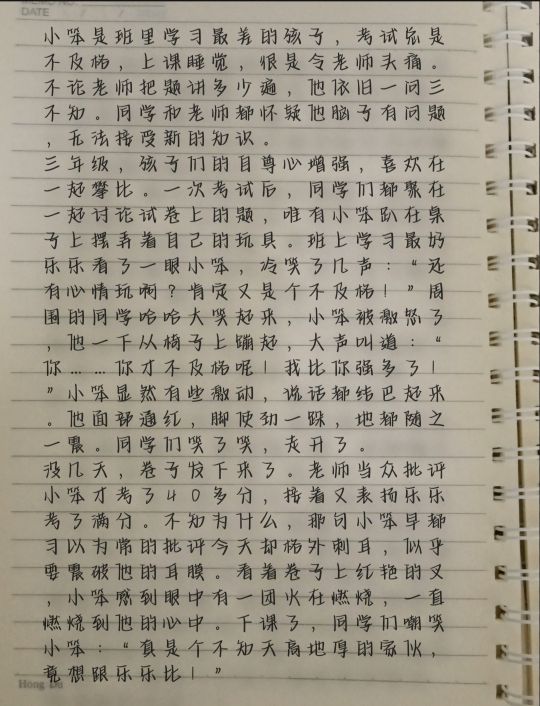 DATE
小笨是班里学习最差的孩子，考试总是
不及格，上课睡觉，很是令老师头痛。
不论老师把题讲多少遍，他依旧一问三
不知。同学和老师都怀疑他脑子有问题
，无法接受新的知识。
三年级，孩子们的自尊心增强，喜欢在
一起攀比。一次考试后，同学们都聚在
一起讨论试卷上的题，唯有小笨趴在桌
子上摆弄着自己的玩具。班上学习最好
乐乐看了一眼小笨，冷笑了几声：“还
有心情玩啊？肯定又是个不及格！”周
围的同学哈哈大笑起来，小笨被激怒了
，他一下从椅子上蹦起，大声叫道：“
你……你才不及格呢！我比你强多了！
”小笨显然有些激动，说话都结巴起来
。他面部通红，脚使劲一跺，地都随之
一震。同学们笑了笑，走开了。
没几天，卷子发下来了。老师当众批评
小笨才考了40多分，接着又表扬乐乐
考了满分。不知为什么，那句小笨早都
习以为常的批评今天却格外刺耳，似乎
要震破他的耳膜。看着卷子上红艳的叉
，小笨感到眼中有一团火在燃烧，一直
燃烧到他的心中。下课了，同学们嘲笑
小笨：“真是个不知天高地厚的家伙，
竟想跟乐乐比！”